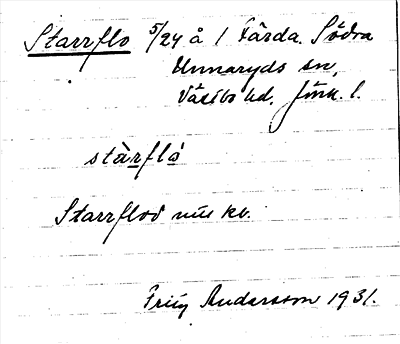 Starrflo 5/24 å 1 Färda. Södra
Unnaryds sn,
Västbo hd, Jönk. l.
stàrflò
Starrflod nus kv.
Fritz Andersson 1931.